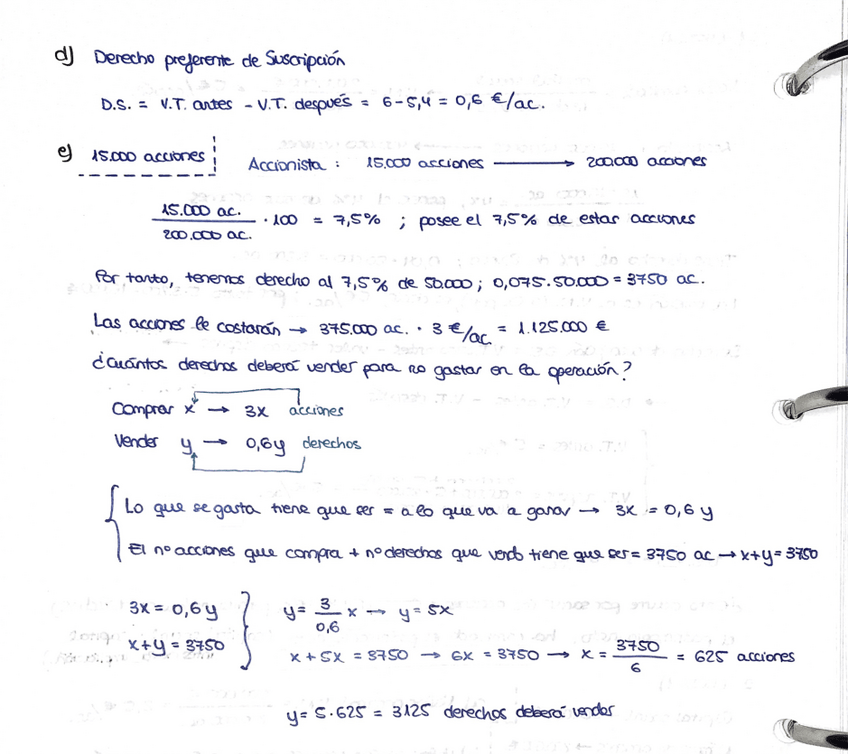 d) Derecho preferente de Suscripción
D.S. = V.T. antes - V.T. después = 6 - 5,4 = 0,6 €/ac.
e) 15.000 acciones Accionista : 15.000 acciones → 200.000 acciones
15.000 ac. / 200.000 ac. · 100 = 7,5% ; posee el 7,5% de estas acciones
Por tanto, tenemos derecho al 7,5% de 50.000 ; 0,075 · 50.000 = 3750 ac.
Las acciones le costarán → 375.000 ac. · 3 €/ac = 1.125.000 €
¿Cuántos derechos deberá vender para no gastar en la operación?
Comprar x → 3x acciones
Vender y → 0,6y derechos
Lo que se gasta tiene que ser = a lo que va a ganar → 3x = 0,6 y
El nº acciones que compra + nº derechos que vendo tiene que ser = 3750 ac → x+y = 3750
3x = 0,6 y y = 3/0,6 x → y = 5x
x + y = 3750 x + 5x = 3750 → 6x = 3750 → x = 3750/6 = 625 acciones
y = 5 · 625 = 3125 derechos deberá vender